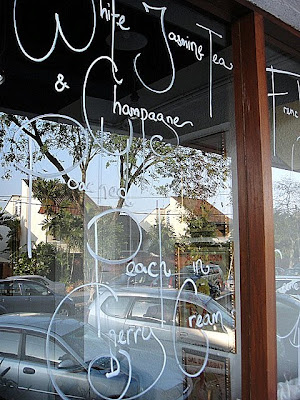 White Jasmine Tea
& Champagne
Poached
Peach in
Cherry Cream